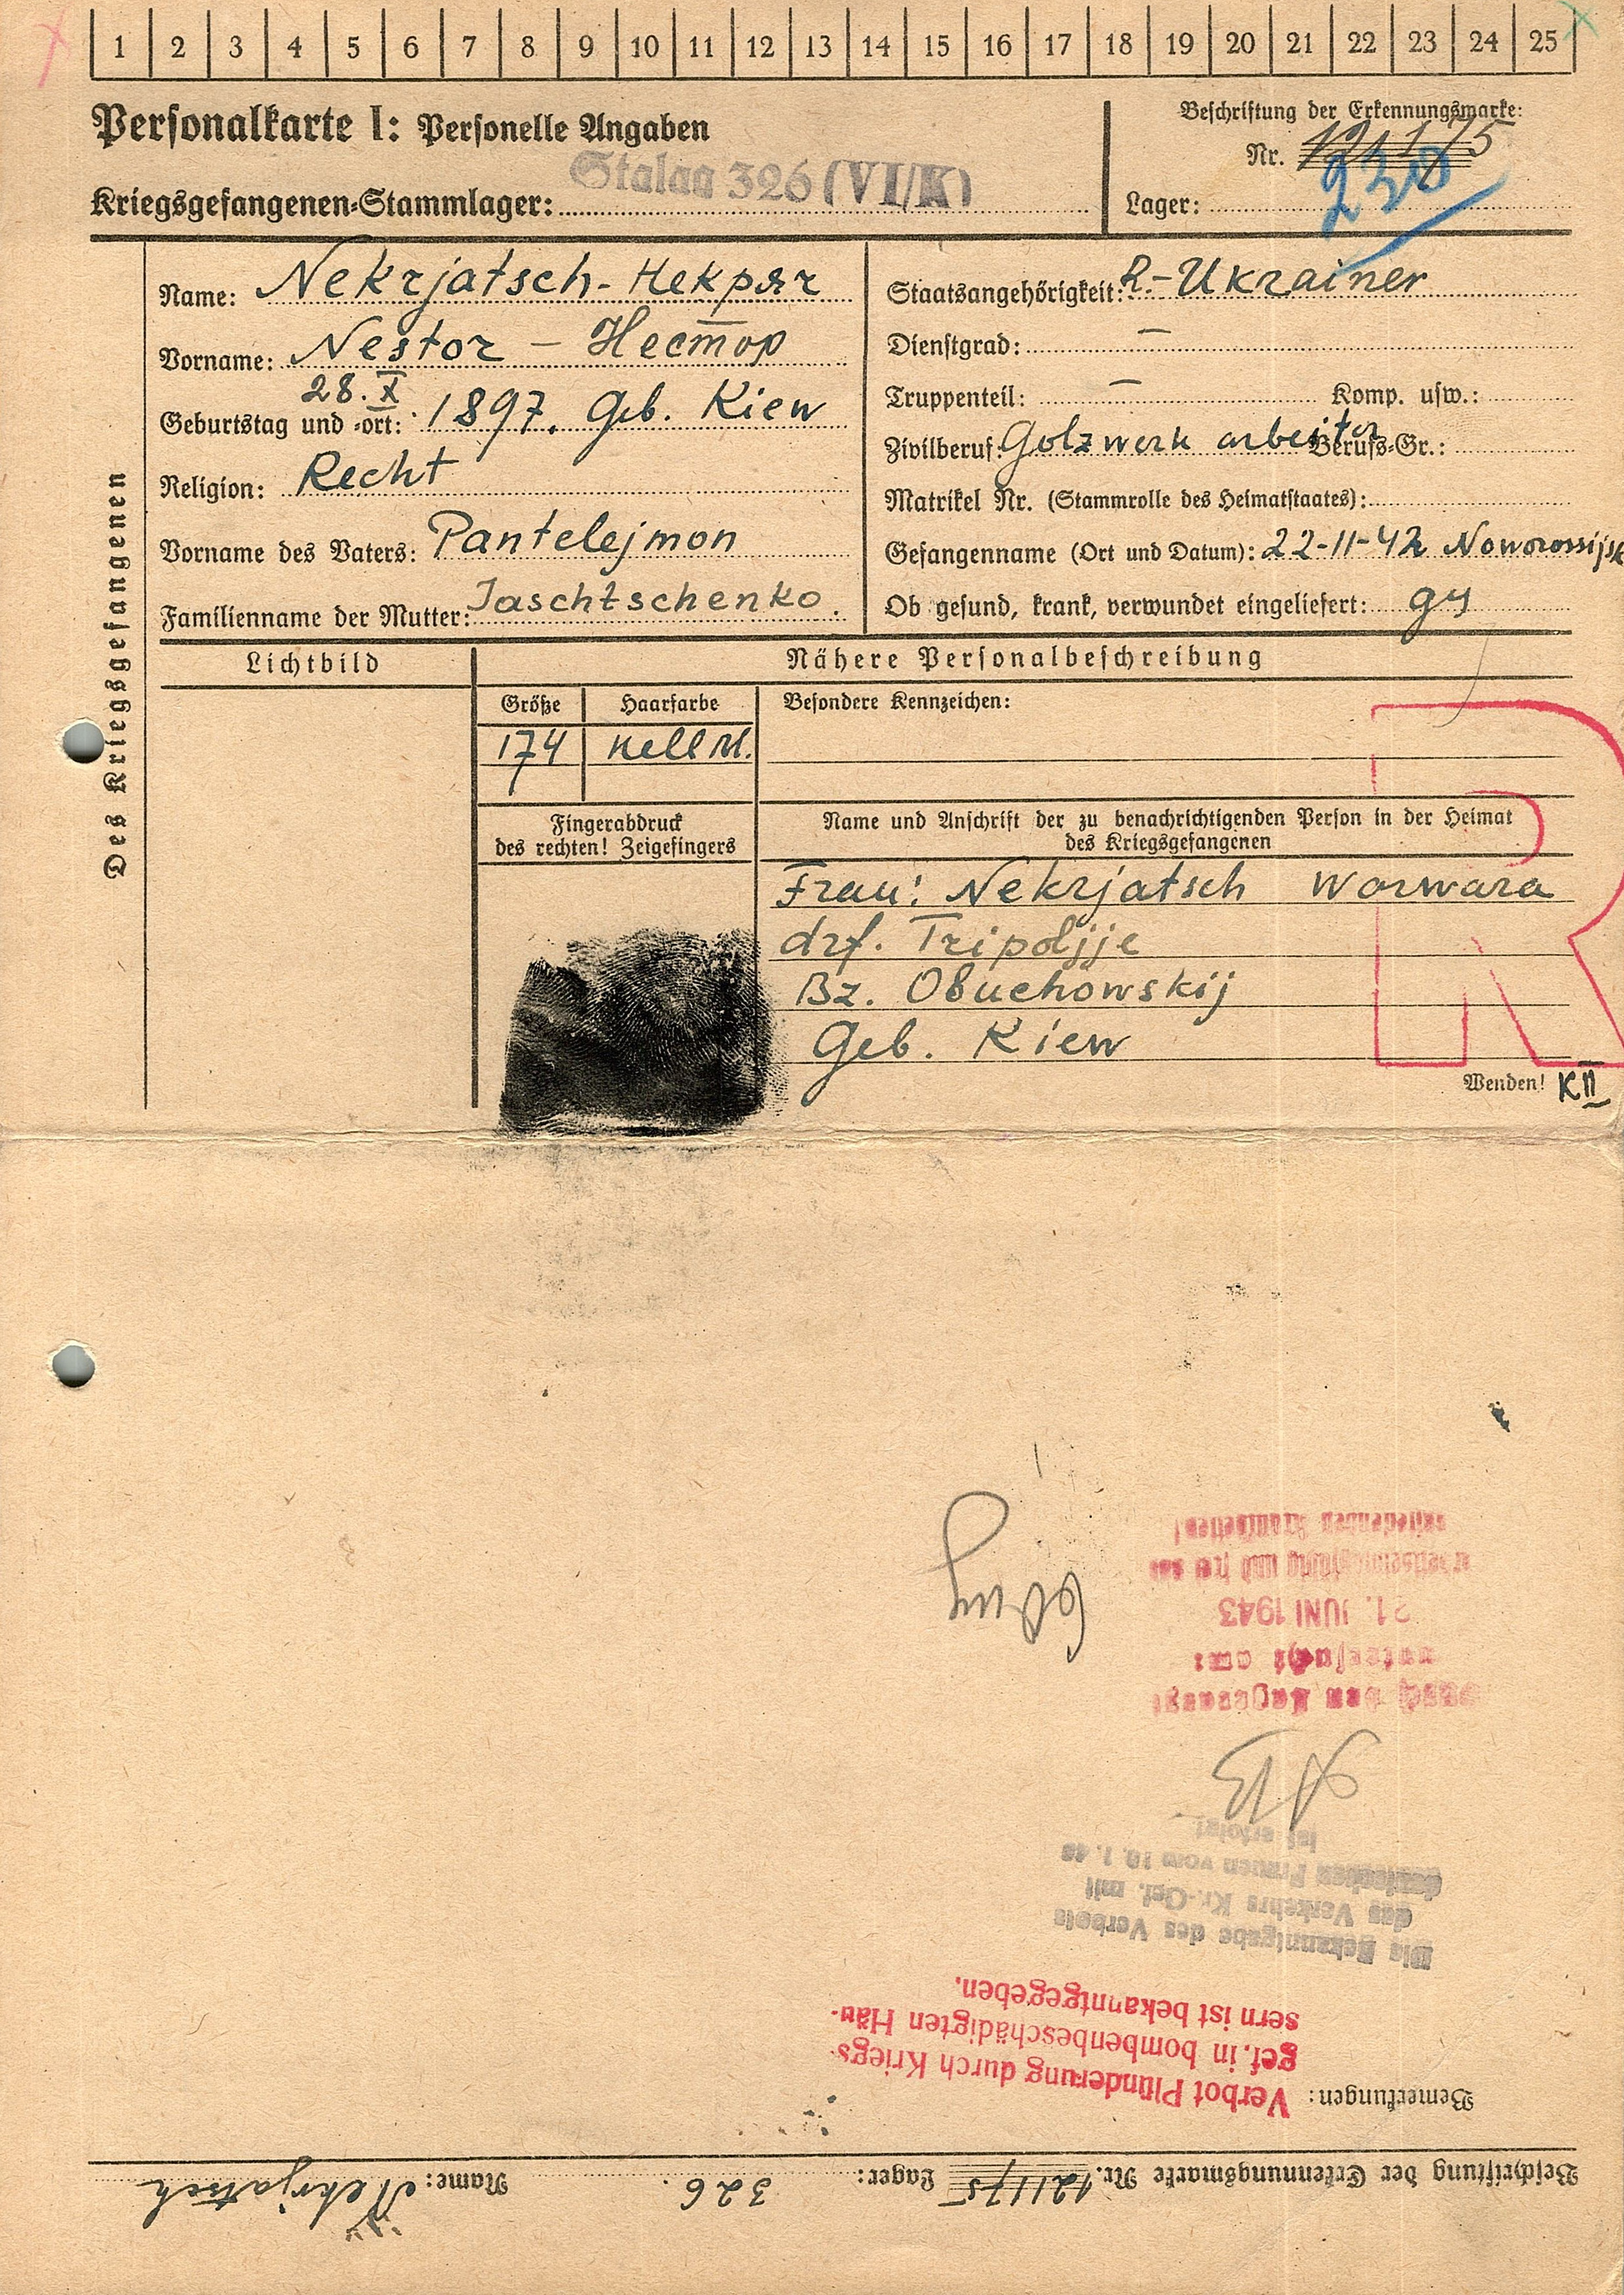 1 2 3 4 5 6 7 8 9 10 11 12 13 14 15 16 17 18 19 20 21 22 23 24 25
Personalkarte I: Personelle Angaben
Kriegsgefangenen-Stammlager: Stalag 326 (VI/K)
Beschriftung der Erkennungsmarke:
Nr. 121175
230
Lager:
Des Kriegsgefangenen
Name: Nekrjatsch - Некряч
Vorname: Nestor - Нестор
28. X
Geburtstag und -ort: 1897. Geb. Kiew
Religion: Recht
Vorname des Vaters: Pantelejmon
Familienname der Mutter: Jaschtschenko.
Staatsangehörigkeit: R.-Ukrainer
Dienstgrad: —
Truppenteil: — Komp. usw.:
Zivilberuf: Golzwerk arbeiter Berufs-Gr.:
Matrikel Nr. (Stammrolle des Heimatstaates):
Gefangenname (Ort und Datum): 22-11-42 Noworossijsk
Ob gesund, krank, verwundet eingeliefert: gs
Lichtbild
Nähere Personalbeschreibung
Größe Haarfarbe Besondere Kennzeichen:
174
Fingerabdruck
des rechten! Zeigefingers
Name und Anschrift der zu benachrichtigenden Person in der Heimat
des Kriegsgefangenen
Frau: Nekrjatsch Worwara
drf. Tripoljje
Bz. Obuchowskij
Geb. Kiew
R
Wenden! KII
Beschriftung der Erkennungsmarke Nr. 121175 Lager: 326. Name: Nekrjatsch
Bemerkungen:
Verbot Plünderung durch Kriegs-
gef. in bombenbeschädigten Häu-
sern ist bekanntgegeben.
Die Bekanntgabe des Verbots
des Verkehrs Kr.-Gef. mit
deutschen Frauen vom 10. 1. 
ist erfolgt
Lagerarzt
untersucht am:
21. JUNI 1943
und frei von
ansteckenden Krankheiten!